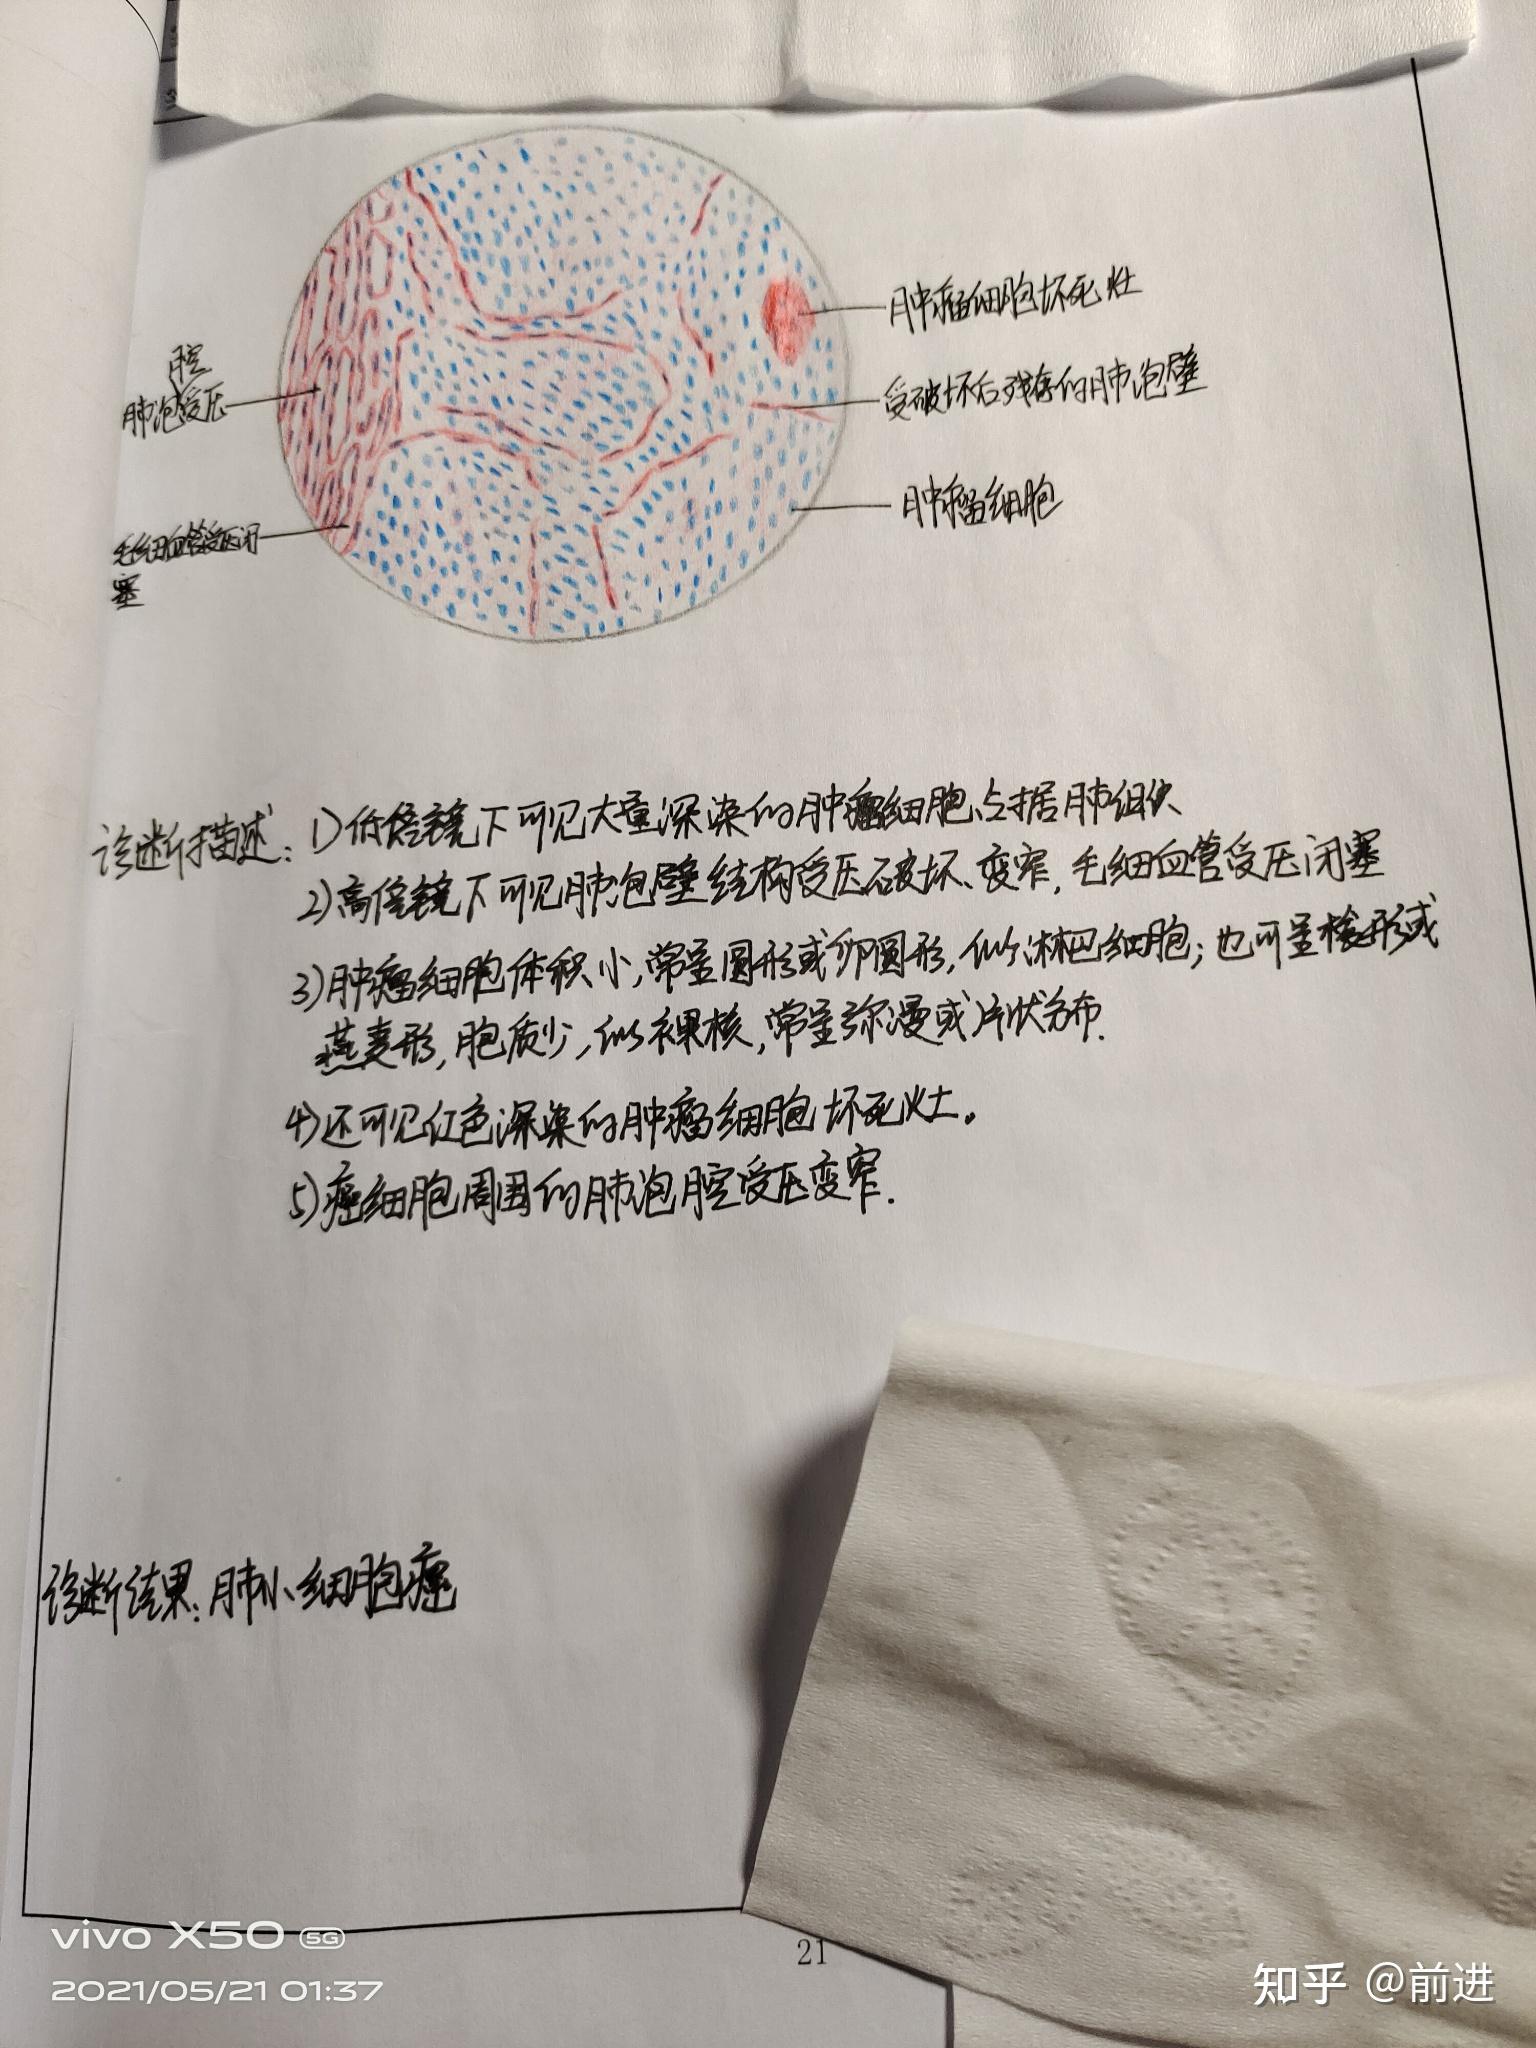 肿瘤细胞坏死灶
腔
肺泡受压
受破坏后残存的肺泡壁
肿瘤细胞
毛细血管受压闭
塞
诊断描述：1)低倍镜下可见大量深染的肿瘤细胞占据肺组织
2)高倍镜下可见肺泡壁结构受压破坏、变窄，毛细血管受压闭塞
3)肿瘤细胞体积小，常呈圆形或卵圆形，似淋巴细胞；也可呈梭形或
燕麦形，胞质少，似裸核，常呈弥漫或片状分布.
4)还可见红色深染的肿瘤细胞坏死灶。
5)癌细胞周围的肺泡腔受压变窄.
诊断结果：肺小细胞癌
vivo X50 5G
2021/05/21 01:37
21
知乎 @前进